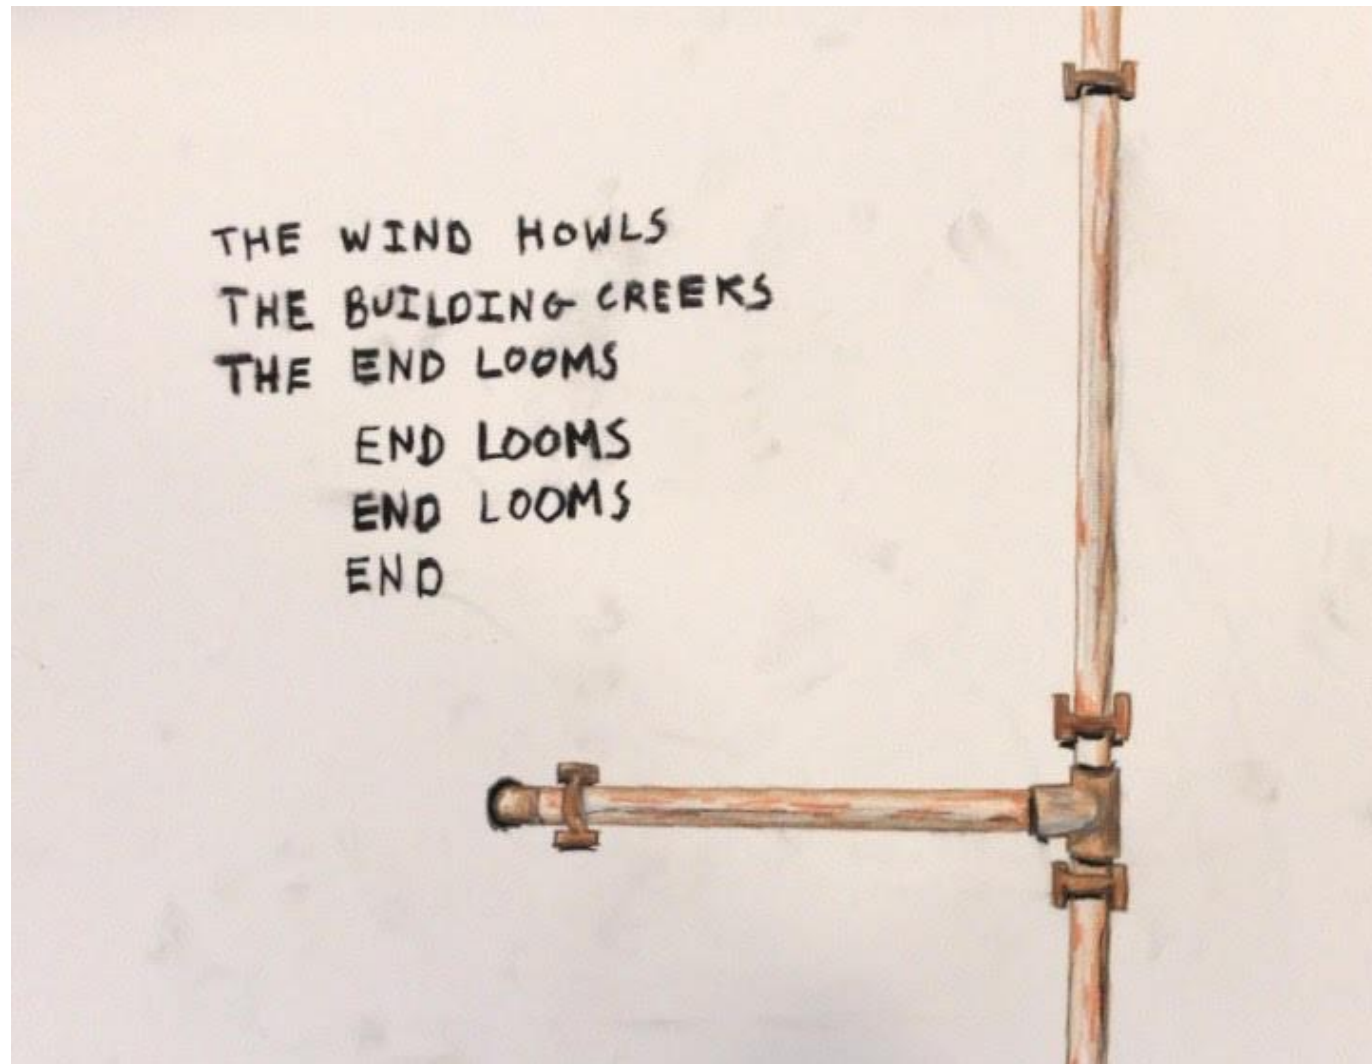 THE WIND HOWLS
THE BUILDING CREEKS
THE END LOOMS
END LOOMS
END LOOMS
END